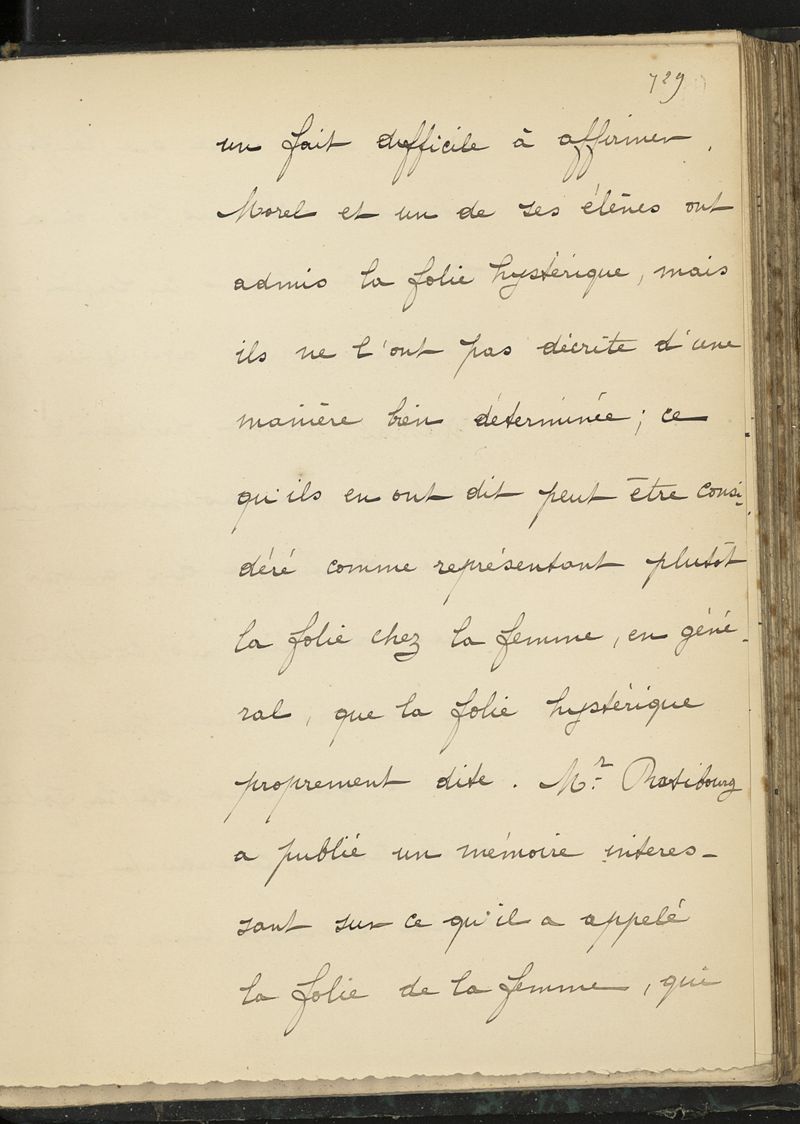 729
un fait difficile à affirmer.
Morel et un de ses élèves ont
admis la folie hystérique, mais
ils ne l'ont pas décrite d'une
manière bien déterminée ; ce
qu'ils en ont dit peut être consi-
déré comme représentant plutôt
la folie chez la femme, en géné-
ral, que la folie hystérique
proprement dite. Mr. Ratibourg
a publié un mémoire interes-
sant sur ce qu'il a appelé
la folie de la femme, qui